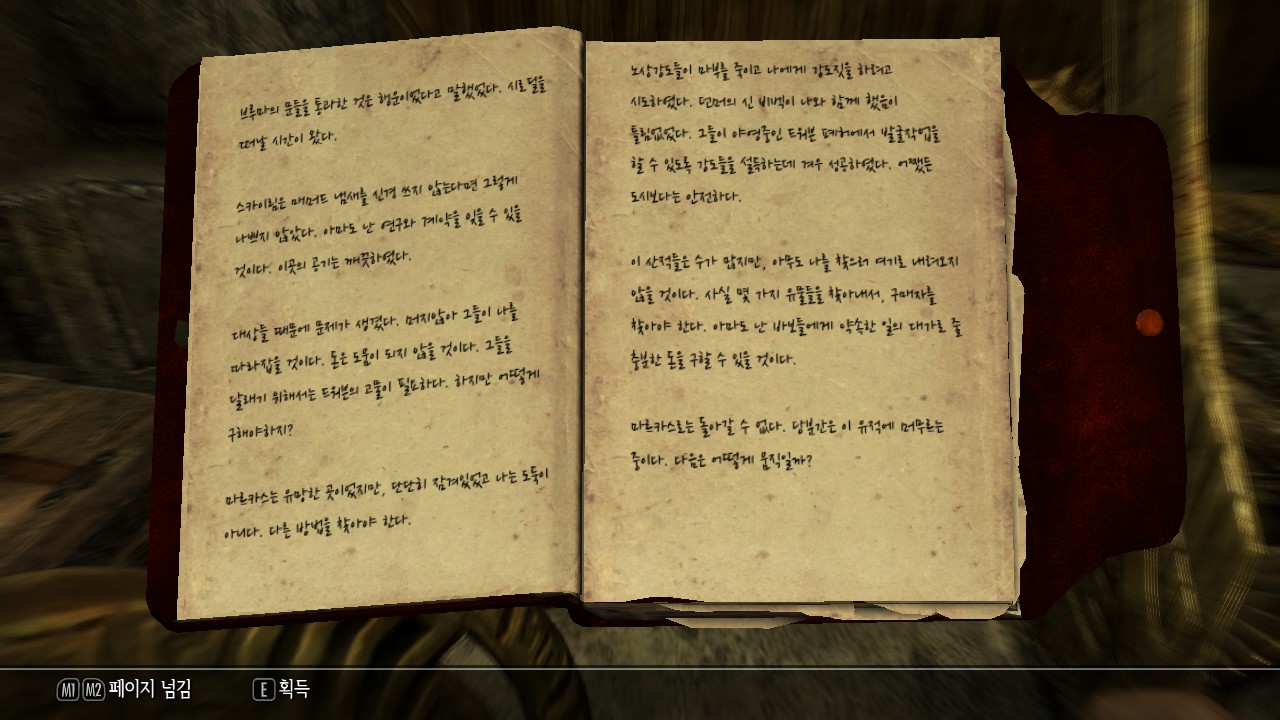 브루마의 문들을 통과한 것은 행운이었다고 말했었다. 시로딜을
떠날 시간이 왔다.
스카이림은 매머드 냄새를 신경 쓰지 않는다면 그렇게
나쁘지 않았다. 아마도 난 연구와 계약을 잊을 수 있을
것이다. 이곳의 공기는 깨끗하였다.
대상들 때문에 문제가 생겼다. 머지않아 그들이 나를
따라잡을 것이다. 돈은 도움이 되지 않을 것이다. 그들을
달래기 위해서는 드워븐의 고물이 필요하다. 하지만 어떻게
구해야하지?
마르카스는 유망한 곳이었지만, 단단히 잠겨있었고 나는 도둑이
아니다. 다른 방법을 찾아야 한다.
노상강도들이 마부를 죽이고 나에게 강도짓을 하려고
시도하였다. 던머의 신 비벡이 나와 함께 했음이
틀림없었다. 그들이 야영중인 드워븐 폐허에서 발굴작업을
할 수 있도록 강도들을 설득하는데 겨우 성공하였다. 어쨌든
도시보다는 안전하다.
이 산적들은 수가 많지만, 아무도 나를 찾으러 여기로 내려오지
않을 것이다. 사실 몇 가지 유물들을 찾아내서, 구매자를
찾아야 한다. 아마도 난 바보들에게 약속한 일의 대가로 줄
충분한 돈을 구할 수 있을 것이다.
마르카스로는 돌아갈 수 없다. 당분간은 이 유적에 머무르는
중이다. 다음은 어떻게 움직일까?
M1 M2 페이지 넘김
E 획득